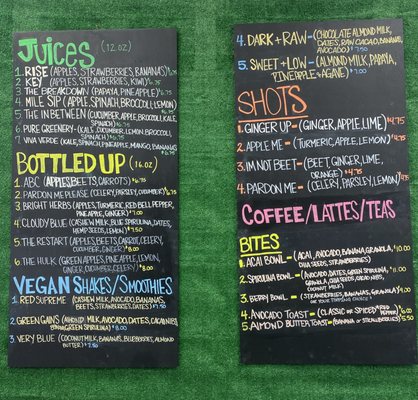 JUICES (12.OZ)
1. RISE (APPLES, STRAWBERRIES, BANANAS) $6.75
2. KEY (APPLES, STRAWBERRIES, KIWI) $6.75
3. THE BREAKDOWN (PAPAYA, PINEAPPLE) $6.75
4. MILE SIP (APPLE, SPINACH, BROCCOLI, LEMON)
$6.75
5. THE IN BETWEEN (CUCUMBER, APPLE, BROCCOLI, KALE,
SPINACH) $6.75
6. PURE GREENERY- (KALE, CUCUMBER, LEMON, BROCCOLI,
SPINACH) $6.75
7. VIVA VERDE (KALE, SPINACH, PINEAPPLE, MANGO, BANANAS)
$6.75
BOTTLED UP (16 oz)
1. ABC (APPLES, BEETS, CARROTS) $6.75
2. PARDON ME PLEASE (CELERY, PARSLEY, CUCUMBER) $6.75
3. BRIGHT HERBS (APPLES, TURMERIC, RED BELL PEPPER,
PINEAPPLE, GINGER) $7.00
4. CLOUDY BLUE (CASHEW MILK, BLUE SPIRULINA, DATES,
HEMP SEEDS, LEMON) $7.50
5. THE RESTART (APPLES, BEETS, CARROT, CELERY,
CUCUMBER, GINGER) $8.00
6. THE HULK (GREEN APPLES, PINEAPPLE, LEMON,
GINGER, CUCUMBER, CELERY) $8.00
VEGAN SHAKES/SMOOTHIES
1. RED SUPREME (CASHEW MILK, AVOCADO, BANANAS,
BEETS, STRAWBERRIES, DATES) $7.50
2. GREEN GAINS (ALMOND MILK, AVOCADO, DATES, CACAO NIBS,
GREEN SPIRULINA) $8.00
3. VERY BLUE (COCONUT MILK, BANANAS, BLUEBERRIES, ALMOND
BUTTER) $7.50
4. DARK + RAW- (CHOCOLATE ALMOND MILK,
DATES, RAW CACAO, BANANAS,
AVOCADO) $7.50
5. SWEET + LOW- (ALMOND MILK, PAPAYA,
PINEAPPLE + AGAVE) $7.00
SHOTS
1. GINGER UP- (GINGER, APPLE, LIME) $4.75
2. APPLE ME- (TURMERIC, APPLE, LEMON) $4.75
3. IM NOT BEET- (BEET, GINGER, LIME,
ORANGE) $4.75
4. PARDON ME- (CELERY, PARSLEY, LEMON) $4.75
COFFEE/LATTES/TEAS
BITES
1. ACAI BOWL- (ACAI, AVOCADO, BANANA, GRANOLA, $10.00
CHIA SEEDS, STRAWBERRIES)
2. SPIRULINA BOWL- (AVOCADO, DATES, GREEN SPIRULINA, $11.00
GRANOLA, CHIA SEEDS, CACAO NIBS,
COCONUT MILK)
3. BERRY BOWL- (STRAWBERRIES, BANANAS, GRANOLA) $9.00
4. AVOCADO TOAST- (CLASSIC OR SPICED) RED PEPPER $6.00
5. ALMOND BUTTER TOAST- (BANANA OR STRAWBERRIES) $5.50